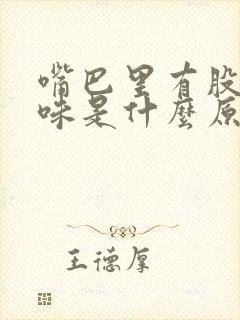 嘴巴里有股
味是什麼原
王德厚